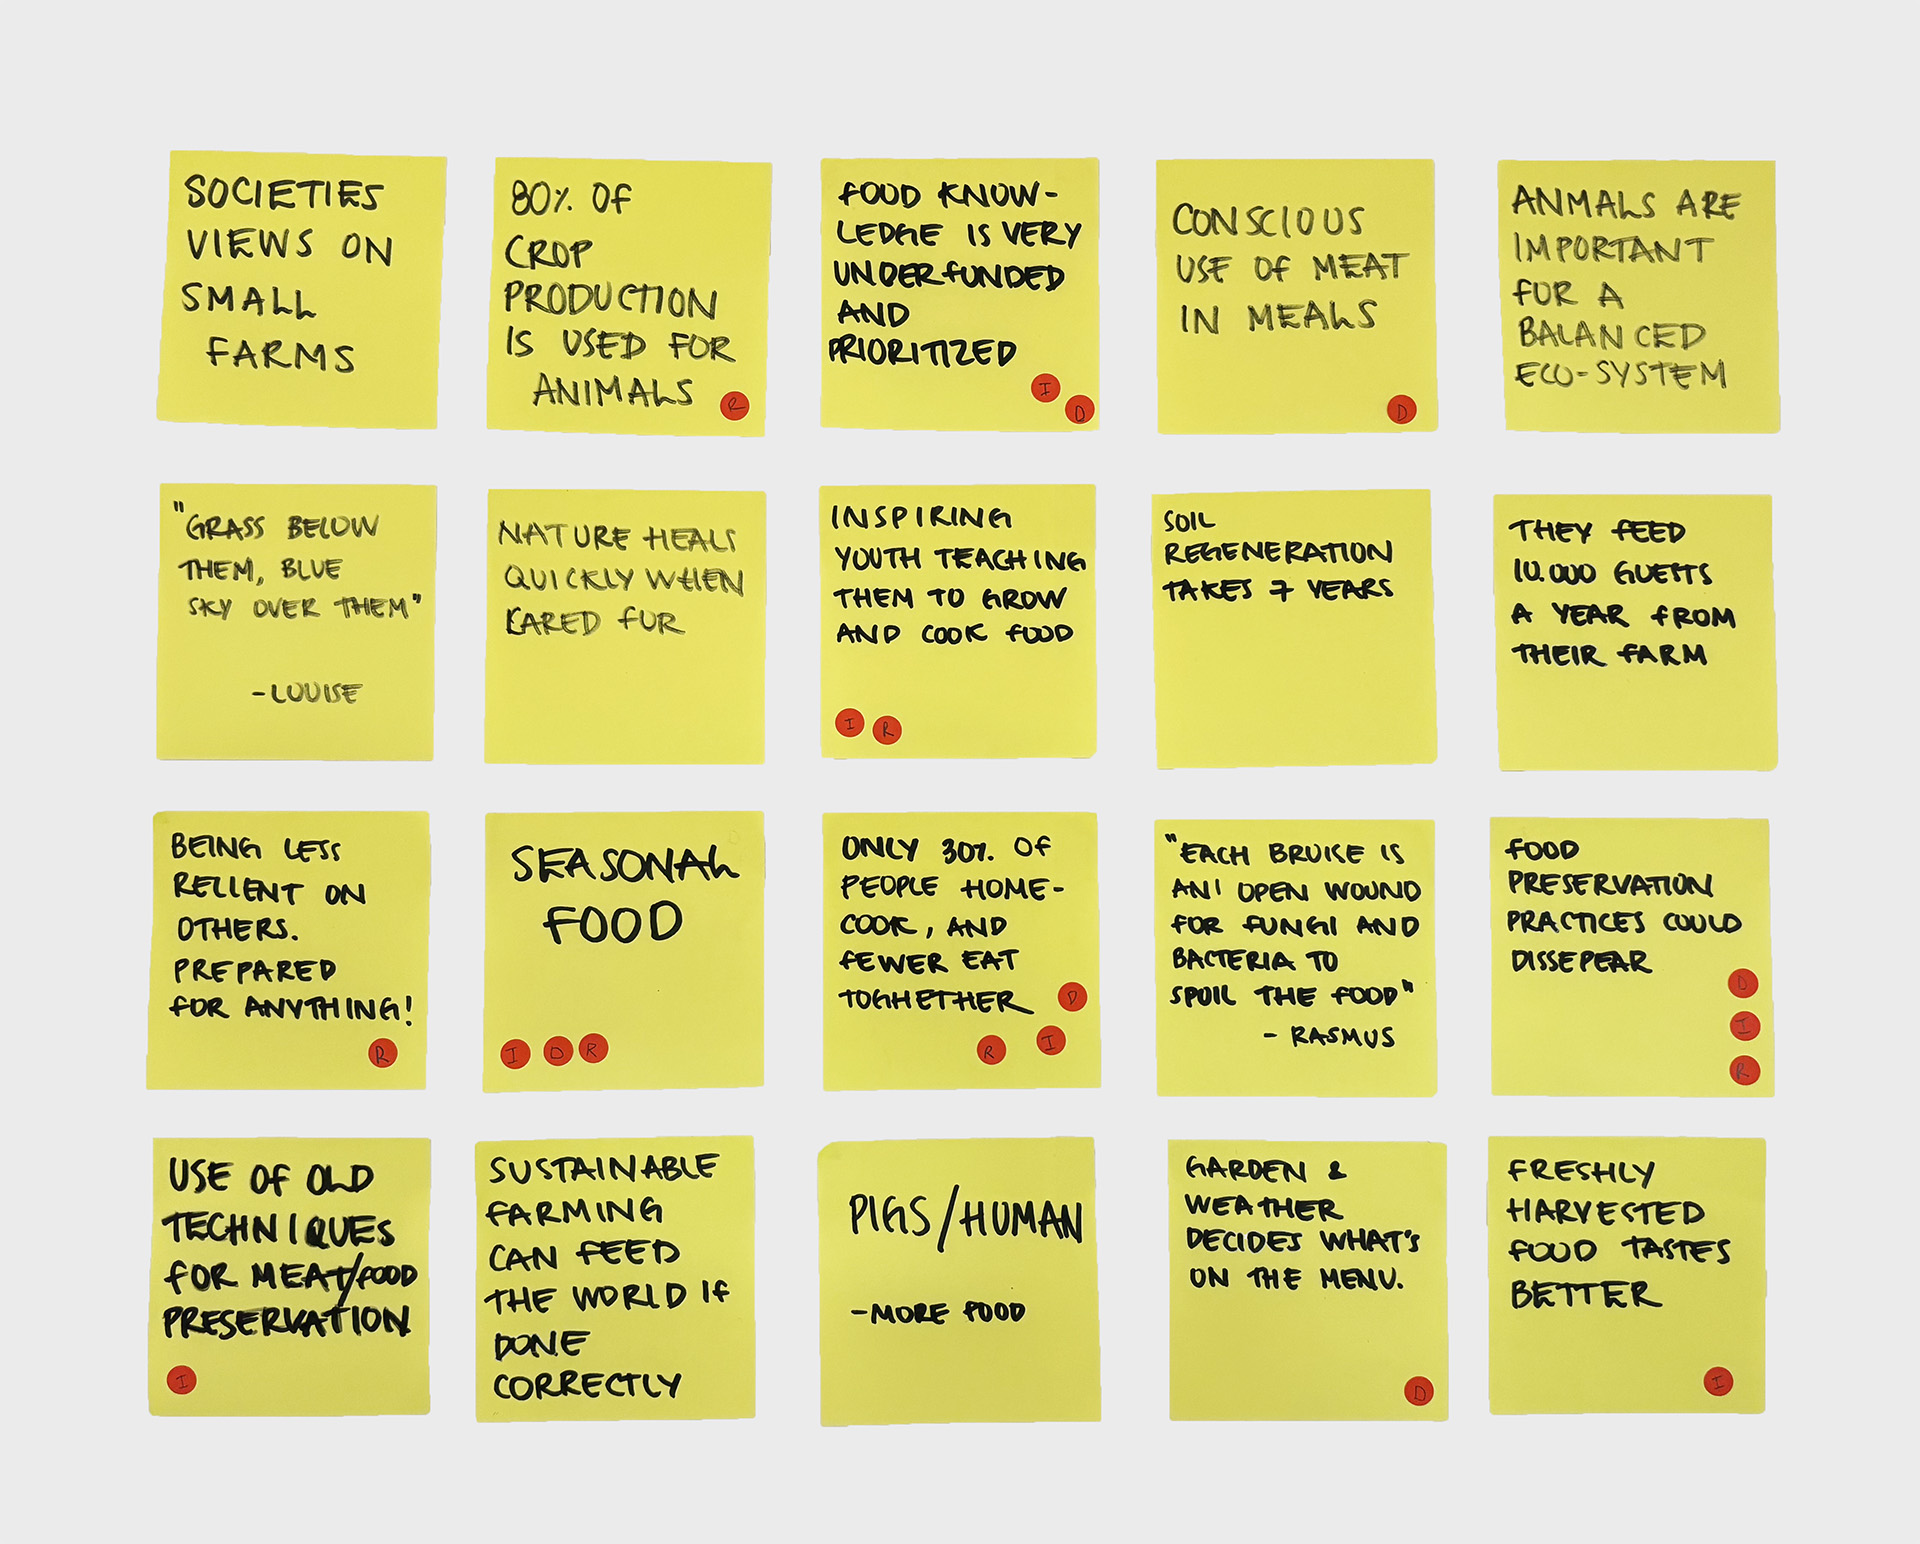 SOCIETIES
VIEWS ON
SMALL
FARMS
80% OF
CROP
PRODUCTION
IS USED FOR
ANIMALS
R
FOOD KNOW-
LEDGE IS VERY
UNDERFUNDED
AND
PRIORITIZED
I
D
CONSCIOUS
USE OF MEAT
IN MEALS
D
ANMALS ARE
IMPORTANT
FOR A
BALANCED
ECO-SYSTEM
"GRASS BELOW
THEM, BLUE
SKY OVER THEM"
-LOUISE
NATURE HEALS
QUICKLY WHEN
CARED FOR
INSPIRING
YOUTH TEACHING
THEM TO GROW
AND COOK FOOD
I R
SOIL
REGENERATION
TAKES 7 YEARS
THEY FEED
10.000 GUESTS
A YEAR FROM
THEIR FARM
BEING LESS
RELIENT ON
OTHERS.
PREPARED
FOR ANYTHING!
R
SEASONAL
FOOD
I D R
ONLY 30% OF
PEOPLE HOME-
COOK, AND
FEWER EAT
TOGHETHER
D
R I
"EACH BRUISE IS
AN OPEN WOUND
FOR FUNGI AND
BACTERIA TO
SPOIL THE FOOD"
- RASMUS
FOOD
PRESERVATION
PRACTICES COULD
DISSEPEAR
D
I
R
USE OF OLD
TECHNIQUES
FOR MEAT/FOOD
PRESERVATION
I
SUSTAINABLE
FARMING
CAN FEED
THE WORLD IF
DONE
CORRECTLY
PIGS/HUMAN
-MORE FOOD
GARDEN &
WEATHER
DECIDES WHAT'S
ON THE MENU.
D
FRESHLY
HARVESTED
FOOD TASTES
BETTER
I